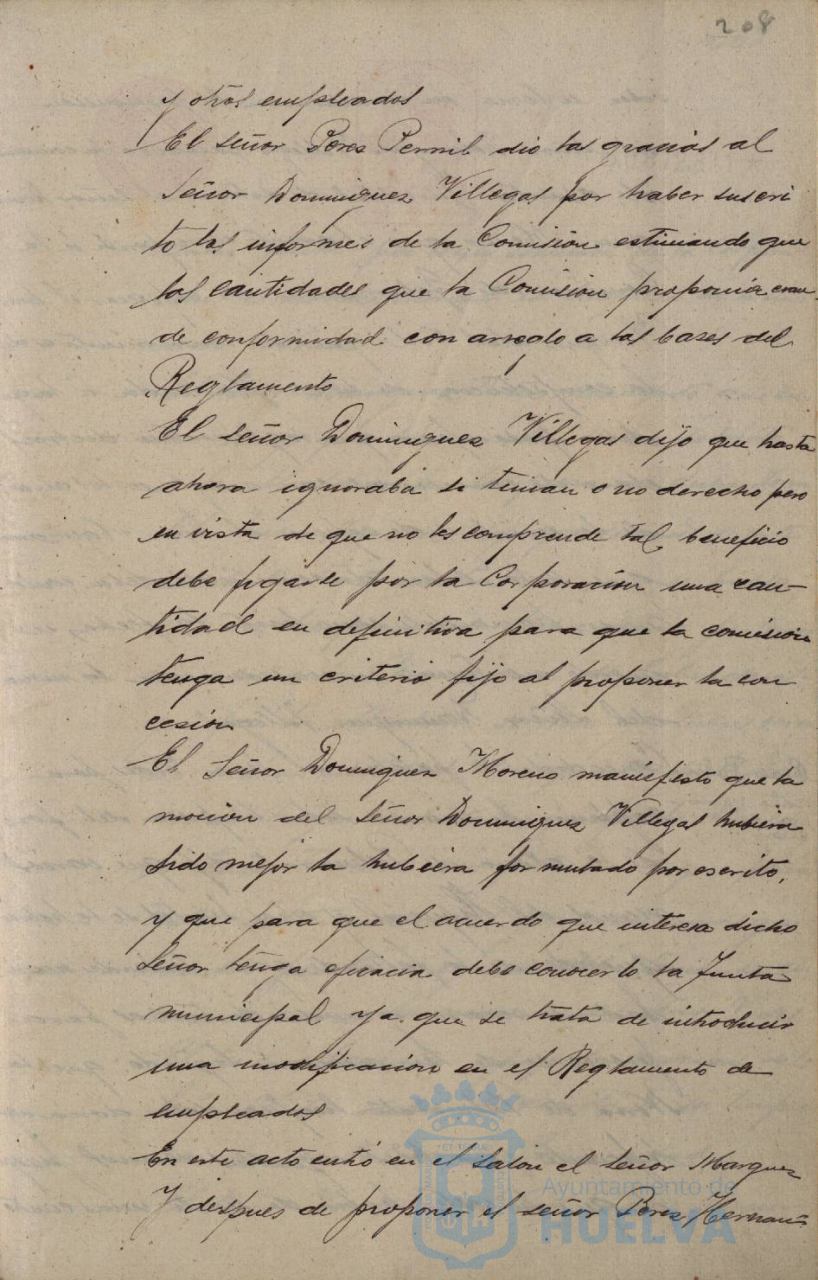 208
y otros empleados
El señor Perez Pernil dio las gracias al
Señor Dominguez Villegas por haber suscri
to los informes de la Comisión estimando que
las cantidades que la Comision proponia eran
de conformidad con arreglo a las bases del
Reglamento
El señor Dominguez Villegas dijo que hasta
ahora ignoraba si tenian o no derecho pero
en vista de que no les comprende tal beneficio
debe fijarse por la Corporación una can-
tidad en definitiva para que la comisión
tenga un criterio fijo al proponer la con
cesión
El Señor Dominguez Moreno manifesto que la
mocion del Señor Dominguez Villegas hubiera
sido mejor la hubiera formulado por escrito,
y que para que el acuerdo que interesa dicho
Señor tenga eficacia debe conocerlo la Junta
municipal ya que se trata de introducir
una modificacion en el Reglamento de
empleados
En este acto entró en el Salon el señor Marquez
Y despues de proponer el señor Perez Hernan-
Ayuntamiento de
HUELVA